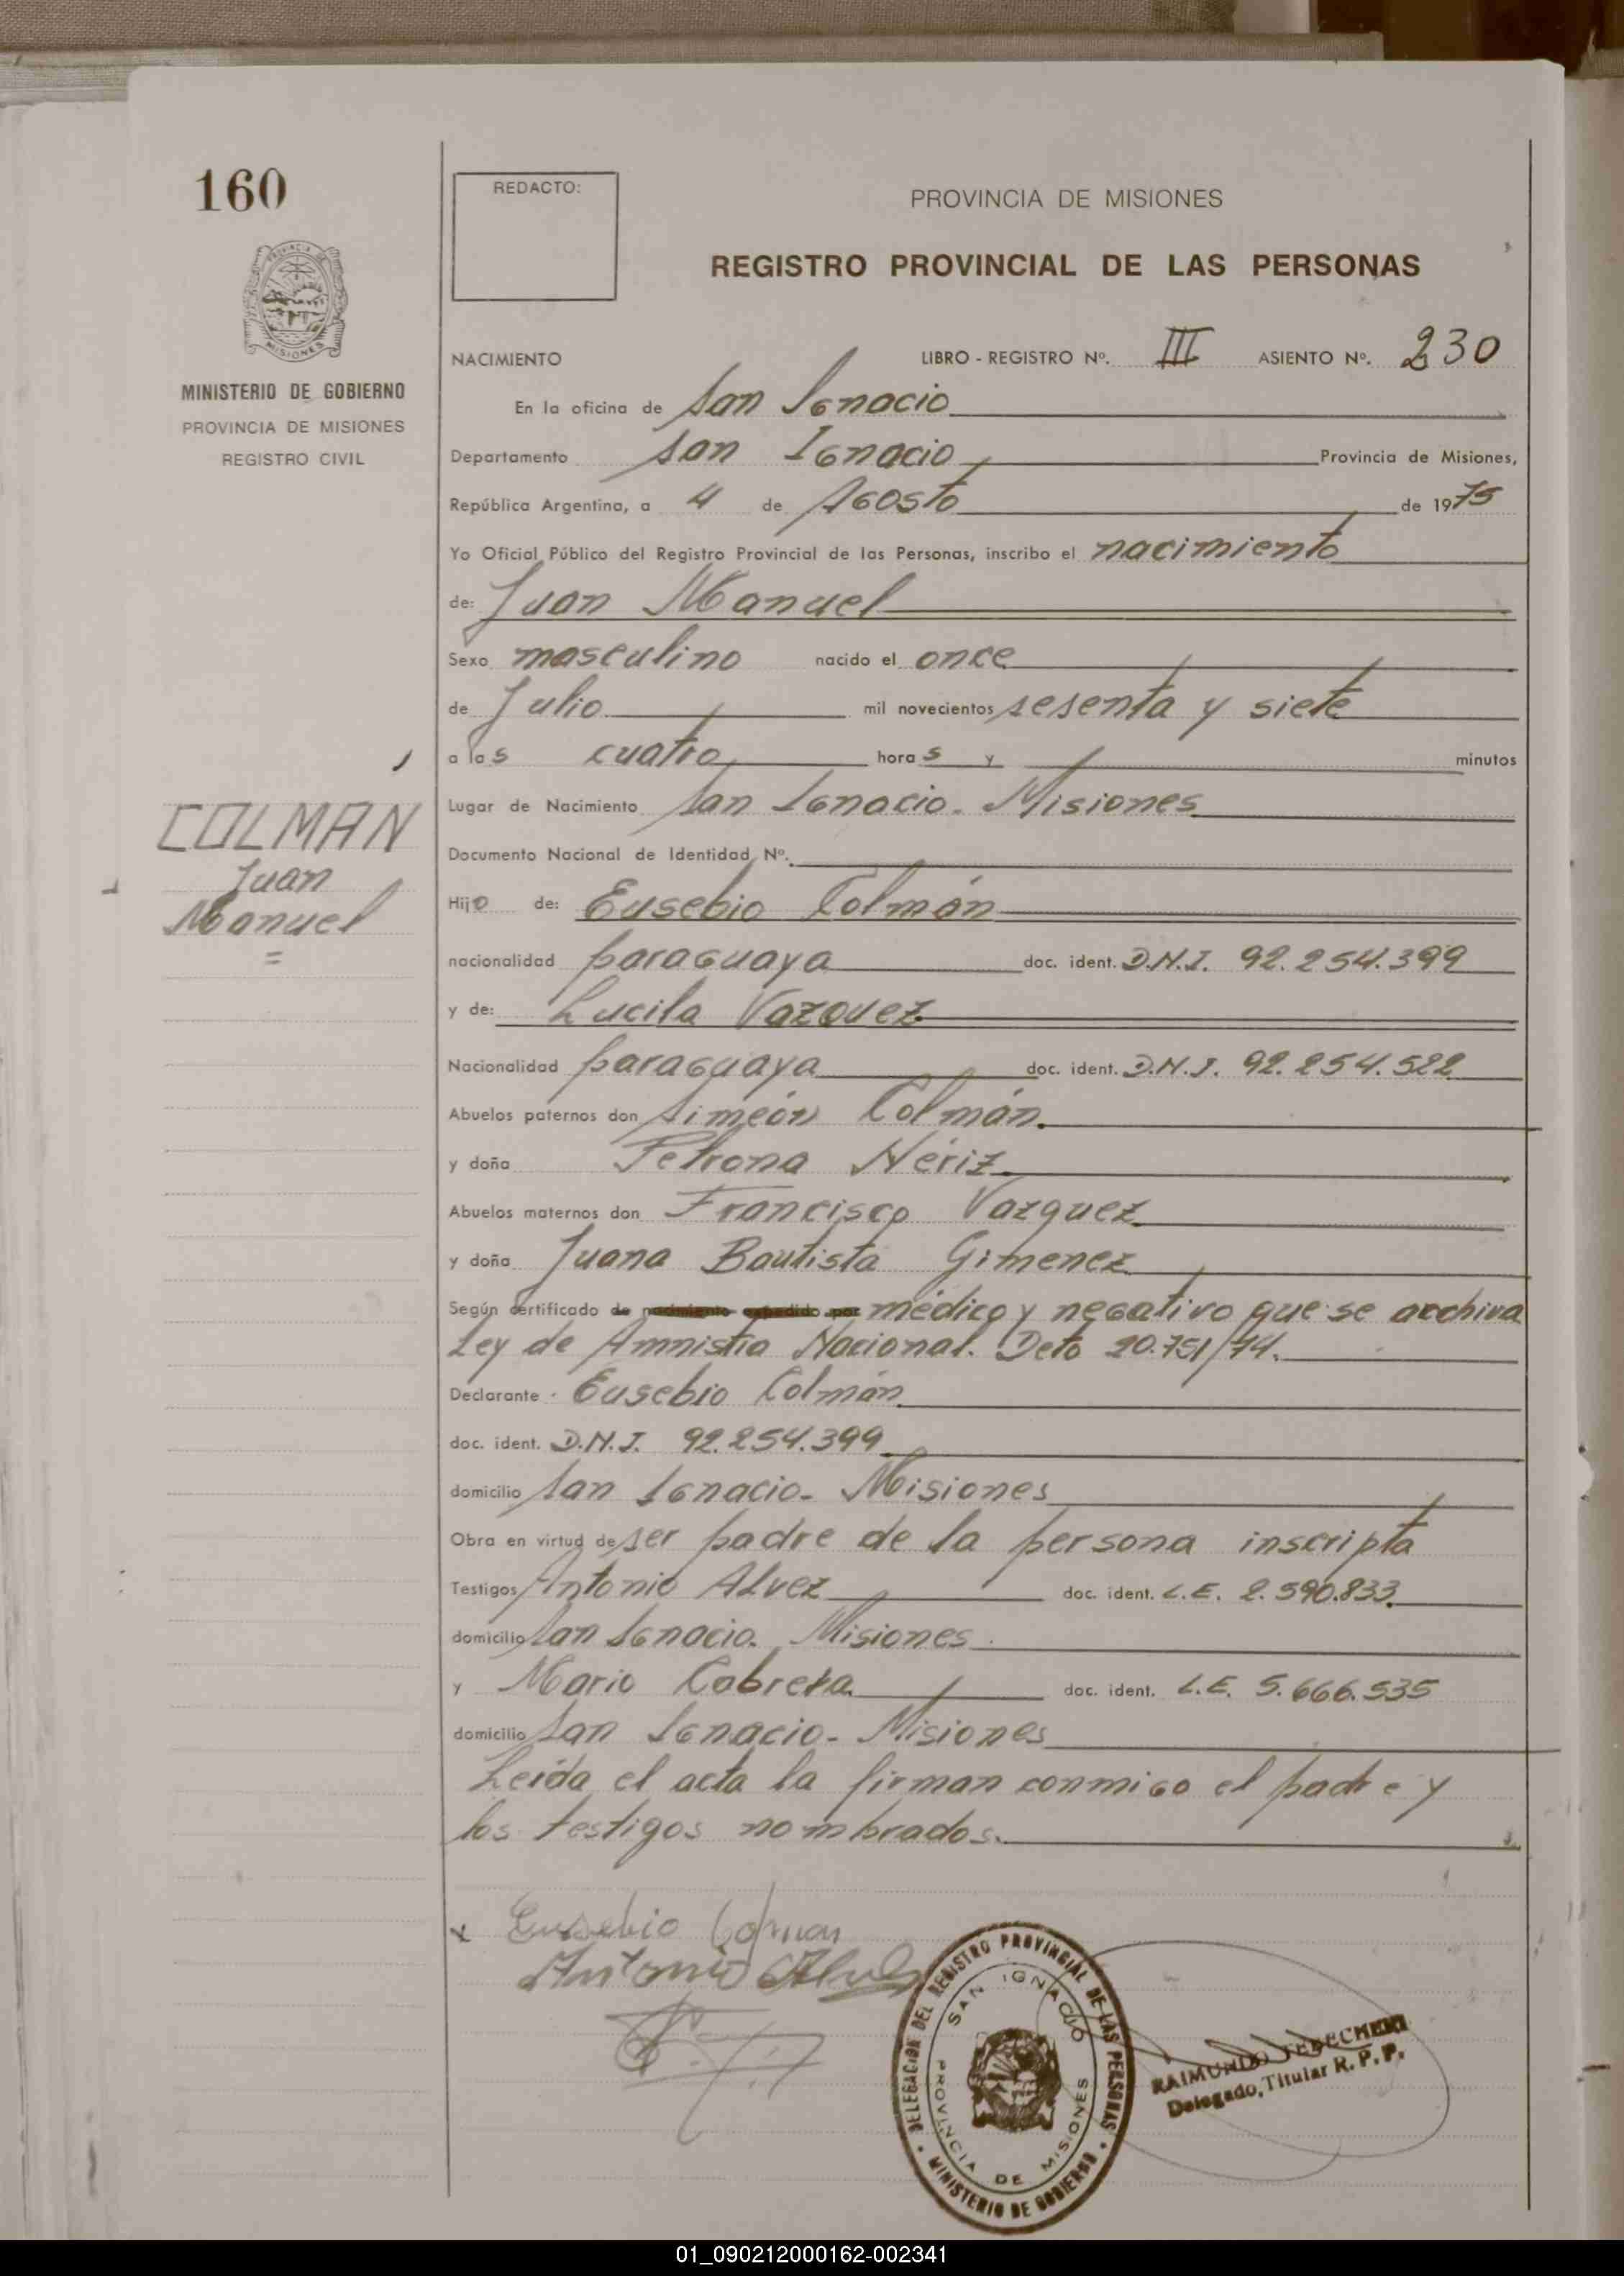 160
REDACTO:
PROVINCIA DE MISIONES
REGISTRO PROVINCIAL DE LAS PERSONAS
PROVINCIA DE
MISIONES
MINISTERIO DE GOBIERNO
PROVINCIA DE MISIONES
REGISTRO CIVIL
NACIMIENTO LIBRO - REGISTRO Nº. III ASIENTO Nº. 230
En la oficina de San Ignacio
Departamento San Ignacio Provincia de Misiones,
República Argentina, a 4 de Agosto de 1975
Yo Oficial Público del Registro Provincial de las Personas, inscribo el nacimiento
de: Juan Manuel
Sexo masculino nacido el once
de Julio mil novecientos sesenta y siete
a las cuatro horas y minutos
Lugar de Nacimiento San Ignacio - Misiones
COLMAN
Juan
Manuel
=
Documento Nacional de Identidad Nº.
Hijo de: Eusebio Colmán
nacionalidad paraguaya doc. ident. D.N.I. 92.254.399
y de: Lucila Vazquez
Nacionalidad paraguaya doc. ident. D.N.I. 92.254.522
Abuelos paternos don Simeón Colmán.
y doña Petrona Nériz
Abuelos maternos don Francisco Vazquez
y doña Juana Bautista Gimenez
Según certificado de nacimiento expedido por médico y negativo que se archiva
Ley de Amnistia Nacional. Deto 20.751/74.
Declarante Eusebio Colmán
doc. ident. D.N.I. 92.254.399
domicilio San Ignacio - Misiones
Obra en virtud de ser padre de la persona inscripta
Testigos Antonio Alvez doc. ident. L.E. 2.590.833
domicilio San Ignacio. Misiones
y Mario Cabrera doc. ident. L.E. 5.666.535
domicilio San Ignacio - Misiones
Leida el acta la firman conmigo el padre y
los testigos nombrados.
x Eusebio Colman
Antonio Alvez
DELEGACION DEL REGISTRO PROVINCIAL DE LAS PERSONAS
MINISTERIO DE GOBIERNO
SAN IGNACIO
PROVINCIA DE MISIONES
RAIMUNDO
Delegado, Titular R. P. P.
01_090212000162-002341